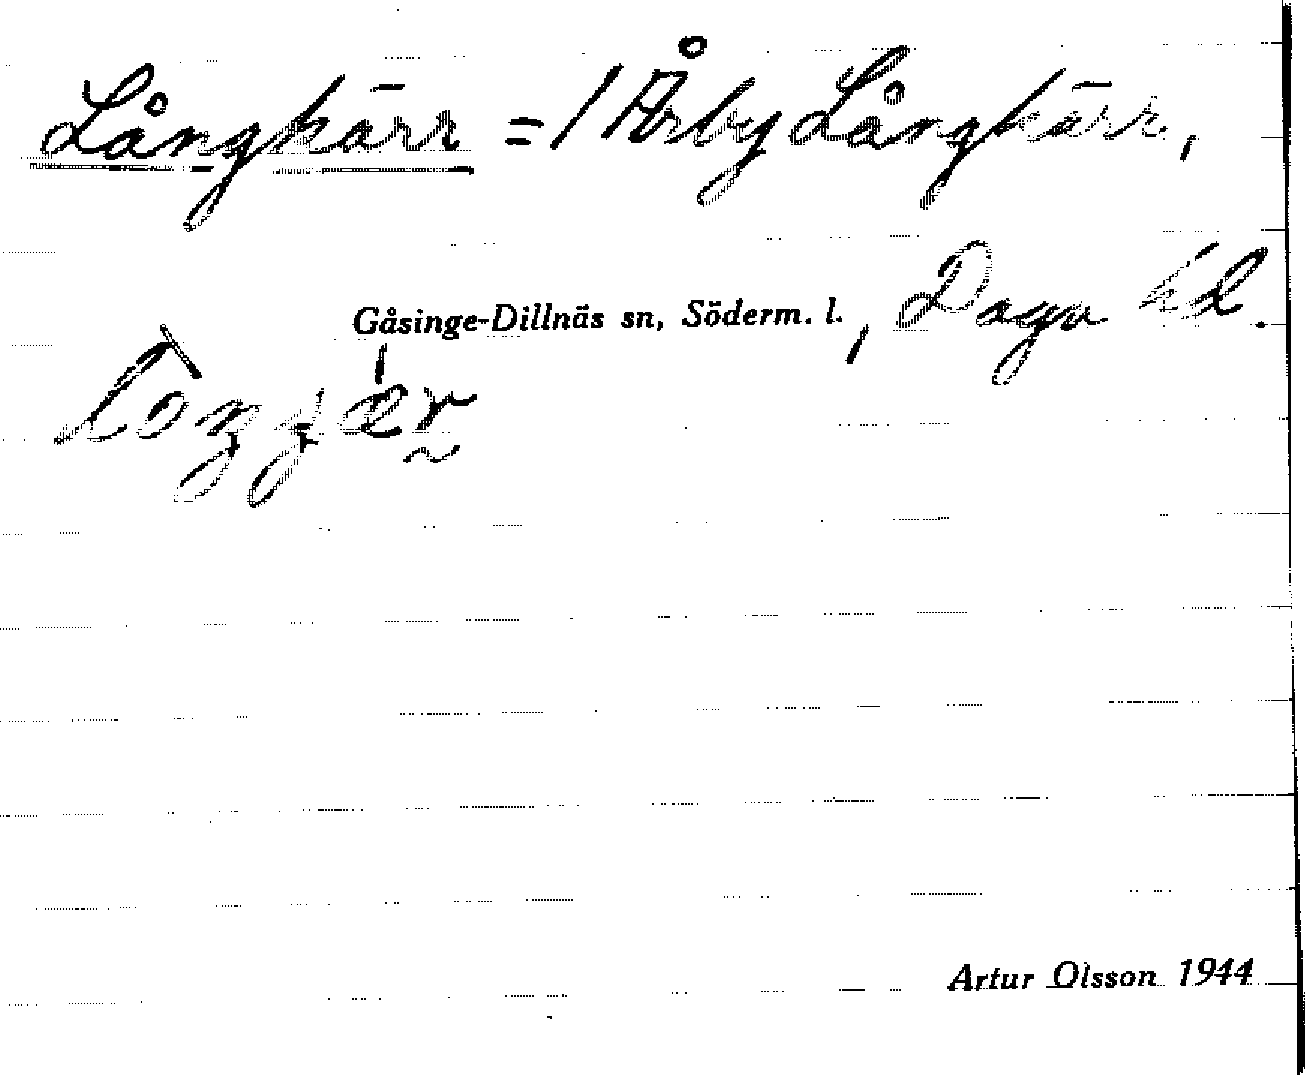 Långkärr = / Årby Långkärr,
Gåsinge-Dillnäs sn, Söderm. l., Daga hd.
Artur Olsson 1944